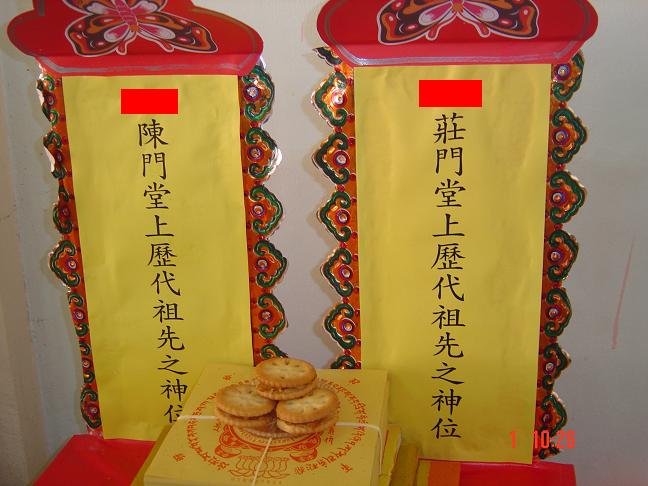 陳門堂上歷代祖先之神位
莊門堂上歷代祖先之神位
1 10:29